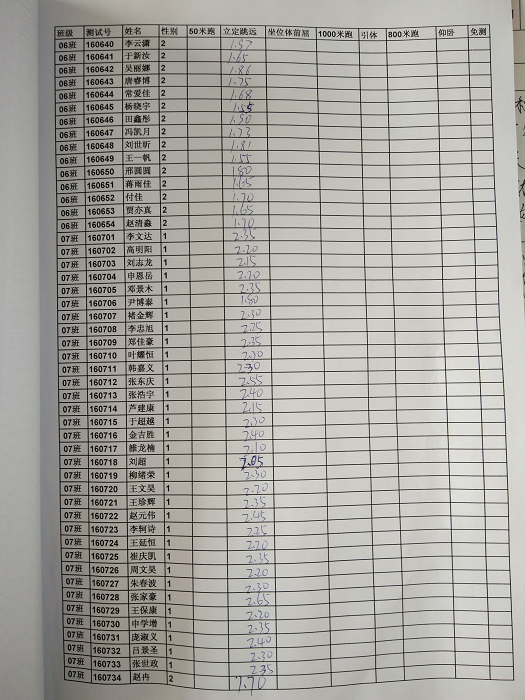 班级 测试号 姓名 性别 50米跑 立定跳远 坐位体前屈 1000米跑 引体 800米跑 仰卧 免测
06班 160640 李云潇 2 1.57
06班 160641 于新汝 2 1.65
06班 160642 吴丽娜 2 1.86
06班 160643 唐睿博 2 1.75
06班 160644 常爱佳 2 1.68
06班 160645 杨晓宇 2 1.55
06班 160646 田鑫彤 2 1.50
06班 160647 冯凯月 2 1.73
06班 160648 刘世昕 2 1.81
06班 160649 王一帆 2 1.55
06班 160650 邢圆圆 2 1.80
06班 160651 蒋雨佳 2 1.65
06班 160652 付佳 2 1.70
06班 160653 贾亦真 2 1.65
06班 160654 赵清淼 2 1.70
07班 160701 李文达 1 2.35
07班 160702 高明阳 1 2.20
07班 160703 刘志龙 1 2.15
07班 160704 申恩岳 1 2.20
07班 160705 邓景木 1 2.35
07班 160706 尹博泰 1 1.80
07班 160707 褚金辉 1 2.30
07班 160708 李志旭 1 2.25
07班 160709 郑佳豪 1 2.35
07班 160710 叶耀恒 1 2.30
07班 160711 韩嘉义 1 2.30
07班 160712 张东庆 1 2.55
07班 160713 张浩宇 1 2.40
07班 160714 芦建康 1 2.15
07班 160715 于超越 1 2.30
07班 160716 金吉胜 1 2.40
07班 160717 雒龙楠 1 2.10
07班 160718 刘超 1 2.05
07班 160719 柳绪荣 1 2.30
07班 160720 王文昊 1 2.20
07班 160721 王珍辉 1 2.35
07班 160722 赵元伟 1 2.45
07班 160723 李轲诗 1 2.25
07班 160724 王延恒 1 2.20
07班 160725 崔庆凯 1 2.35
07班 160726 周文昊 1 2.20
07班 160727 朱春波 1 2.30
07班 160728 张家豪 1 2.65
07班 160729 王保康 1 2.20
07班 160730 申学增 1 2.35
07班 160731 庞淑义 1 2.40
07班 160732 吕景圣 1 2.30
07班 160733 张世政 1 2.35
07班 160734 赵冉 2 1.70